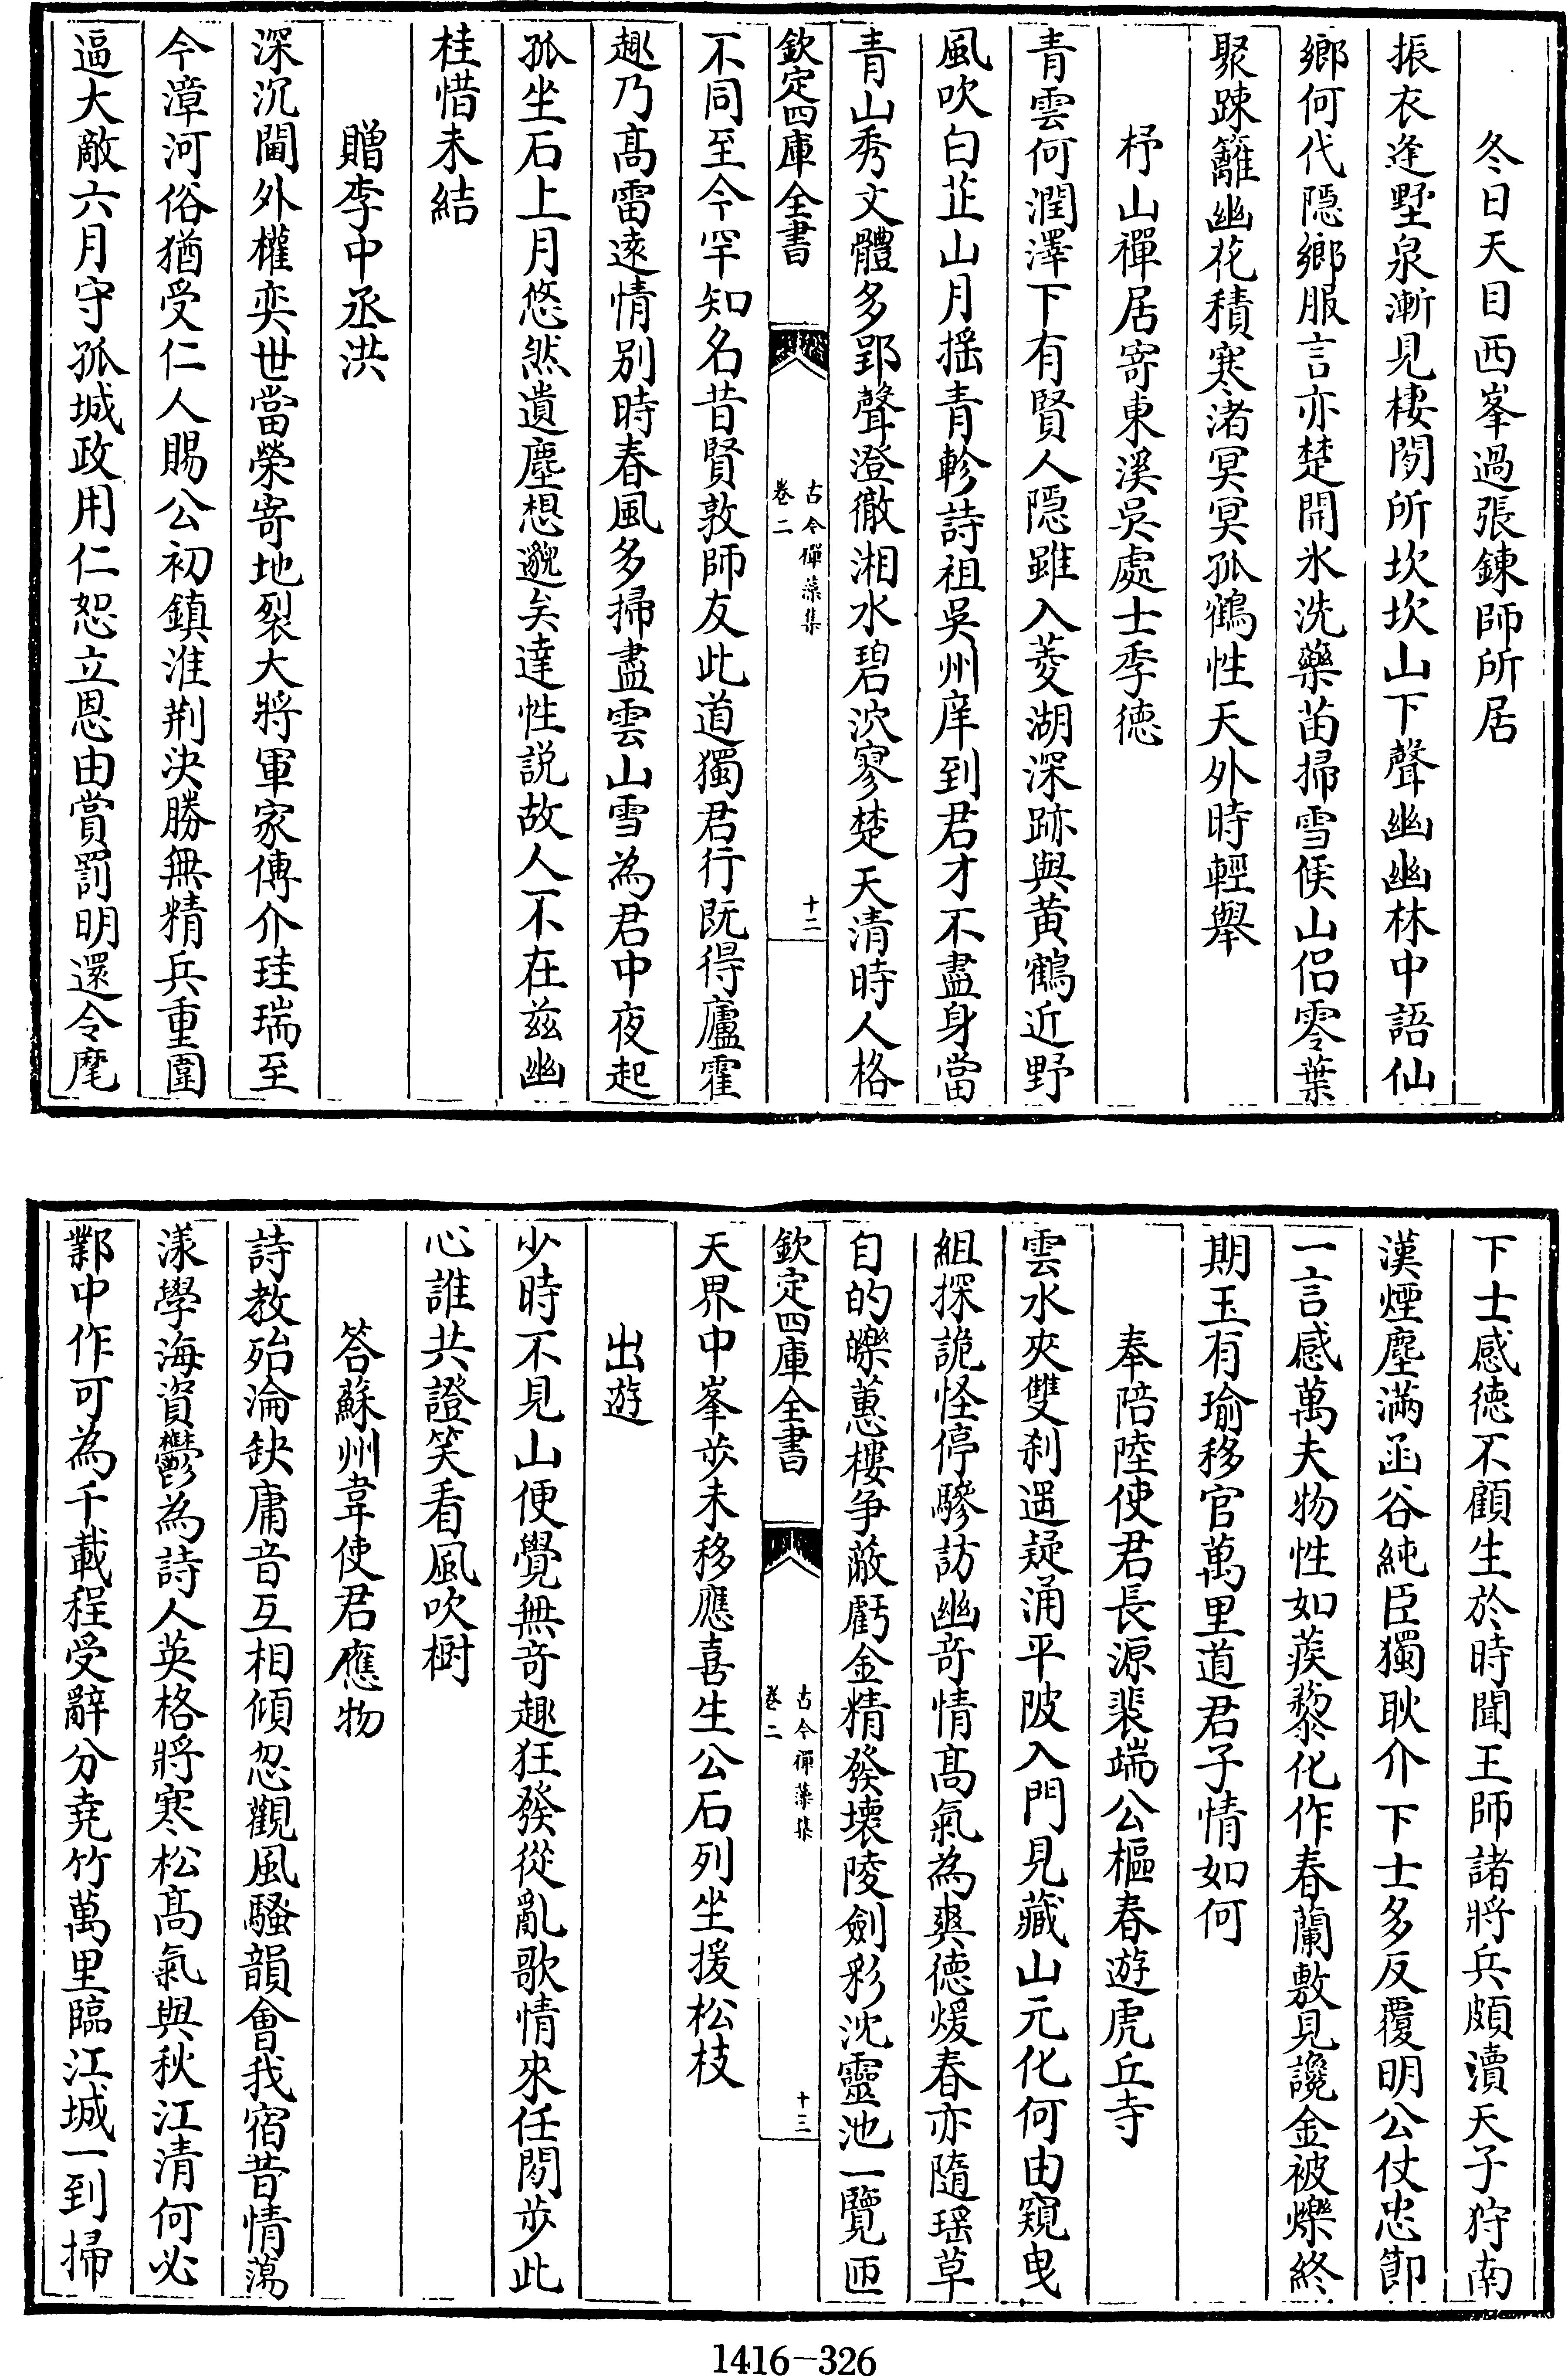 冬日天目西峯過張鍊師所居
振衣逢野泉漸見棲閒所坎坎山下聲幽幽林中語仙
鄉何代隠鄉服言亦楚開水洗藥苗掃雪候山侣零葉
聚踈籬幽花積寒渚冥冥孤鶴性天外時輕舉
杼山禪居寄東溪吳處士季徳
青雲何潤澤下有賢人隠雖入菱湖深跡與黄鶴近野
風吹白芷山月揺青軫詩祖吳州庠到君才不盡身當
青山秀文體多郢聲澄徹湘水碧泬寥楚天清時人格
欽定四庫全書
古今禪藻集
卷二
十二
不同至今罕知名昔賢敦師友此道獨君行既得廬霍
趣乃髙雷逺情别時春風多掃盡雲山雪為君中夜起
孤坐石上月悠然遺塵想邈矣達性説故人不在兹幽
桂惜未結
贈李中丞洪
深沉閫外權奕世當榮寄地裂大將軍家傳介珪瑞至
今漳河俗猶受仁人賜公初鎮淮荆決勝無精兵重圍
逼大敵六月守孤城政用仁恕立恩由賞罰明還令麾
下士感徳不顧生於時聞王師諸將兵頗瀆天子狩南
漢煙塵滿函谷純臣獨耿介下士多反覆明公仗忠節
一言感萬夫物性如蒺藜化作春蘭敷見讒金被爍終
期玉有瑜移官萬里道君子情如何
奉陪陸使君長源裴端公樞春遊虎丘寺
雲水夾雙刹遥疑涌平陂入門見藏山元化何由窺曳
組探詭怪停驂訪幽竒情髙氣為爽徳煖春亦隨瑶草
自的皪蕙樓争蔽虧金精發壊陵劍彩沈靈池一覽匝
欽定四庫全書
古今禪藻集
卷二
十三
天界中峯步未移應喜生公石列坐援松枝
出遊
少時不見山便覺無竒趣狂發從亂歌情來任閒步此
心誰共證笑看風吹樹
答蘇州韋使君應物
詩教殆淪缺庸音互相傾忽觀風騷韻會我宿昔情蕩
漾學海資鬱為詩人英格將寒松髙氣與秋江清何必
鄴中作可為千載程受辭分堯竹萬里臨江城一到掃
1416—326